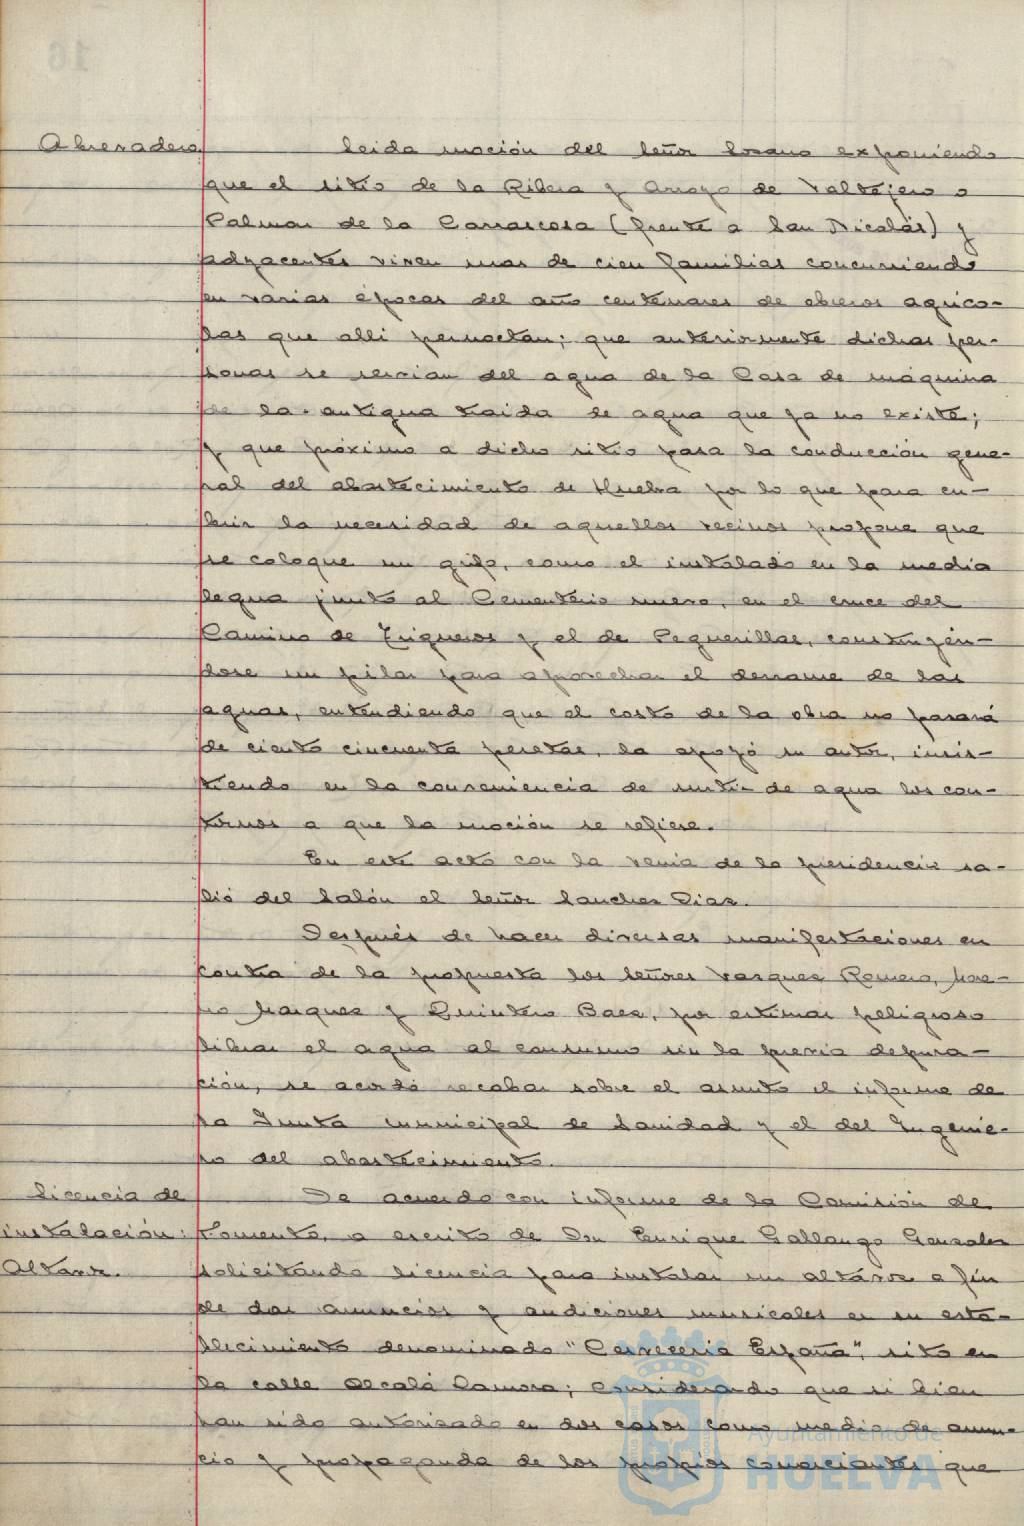 Abrevadero.
Leida moción del Señor Lozano exponiendo
que el sitio de la Ribera y Arroyo de Valtejero o
Palmar de la Carrascosa (frente a San Nicolás) y
adyacentes viven mas de cien familias concurriendo
en varias épocas del año centenares de obreros agrico-
las que alli pernoctan; que anteriormente dichas per-
sonas se servian del agua de la Casa de máquina
de la antigua traida de agua que ya no existe;
y que próximo a dicho sitio pasa la conducción gene-
ral del abastecimiento de Huelva por lo que para cu-
brir la necesidad de aquellos vecinos propone que
se coloque un grifo, como el instalado en la media
legua junto al Cementerio nuevo, en el cruce del
Camino de Trigueros y el de Peguerillas, construyén-
dose un pilar para aprovechar el derrame de las
aguas, entendiendo que el costo de la obra no pasará
de ciento cincuenta pesetas, la apoyó su autor, insis-
tiendo en la conveniencia de surtir de agua los con-
tornos a que la moción se refiere.
En este acto con la venia de la presidencia sa-
lió del Salón el Señor Sanchez Diaz.
Después de hacer diversas manifestaciones en
contra de la propuesta los Señores Vazquez Romero, More-
no Marquez y Quintero Baez, por estimar peligroso
librar el agua al consumo sin la previa depura-
ción, se acordó recabar sobre el asunto el informe de
la Junta municipal de Sanidad y el del Ingenie-
ro del abastecimiento.
Licencia de
instalación:
Altavoz.
De acuerdo con informe de la Comisión de
Fomento, a escrito de Don Enrique Gallango Gonzalez
solicitando licencia para instalar un altavoz a fin
de dar anuncios y audiciones musicales en su esta-
blecimiento denominado "Cerveceria España", sito en
la calle Alcalá Zamora; considerando que si bien
han sido autorizado en dos casos como medio de anun-
cio y propaganda de los propios comerciantes que
Ayuntamiento de
HUELVA
16